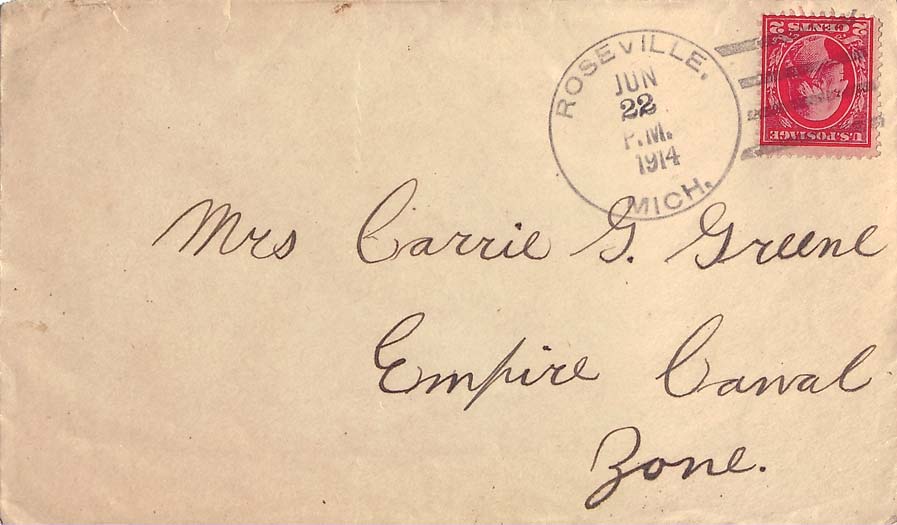 ROSEVILLE,
JUN
22
P.M.
1914
MICH.
U.S. POSTAGE
2 CENTS 2
Mrs Carrie G. Greene
Empire Canal
Zone.